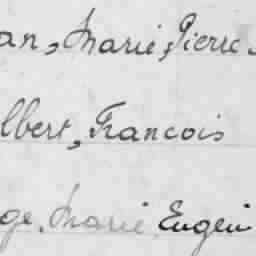 an, Marie, Pierre
lbert, Francois
ge. Marie Eugèn